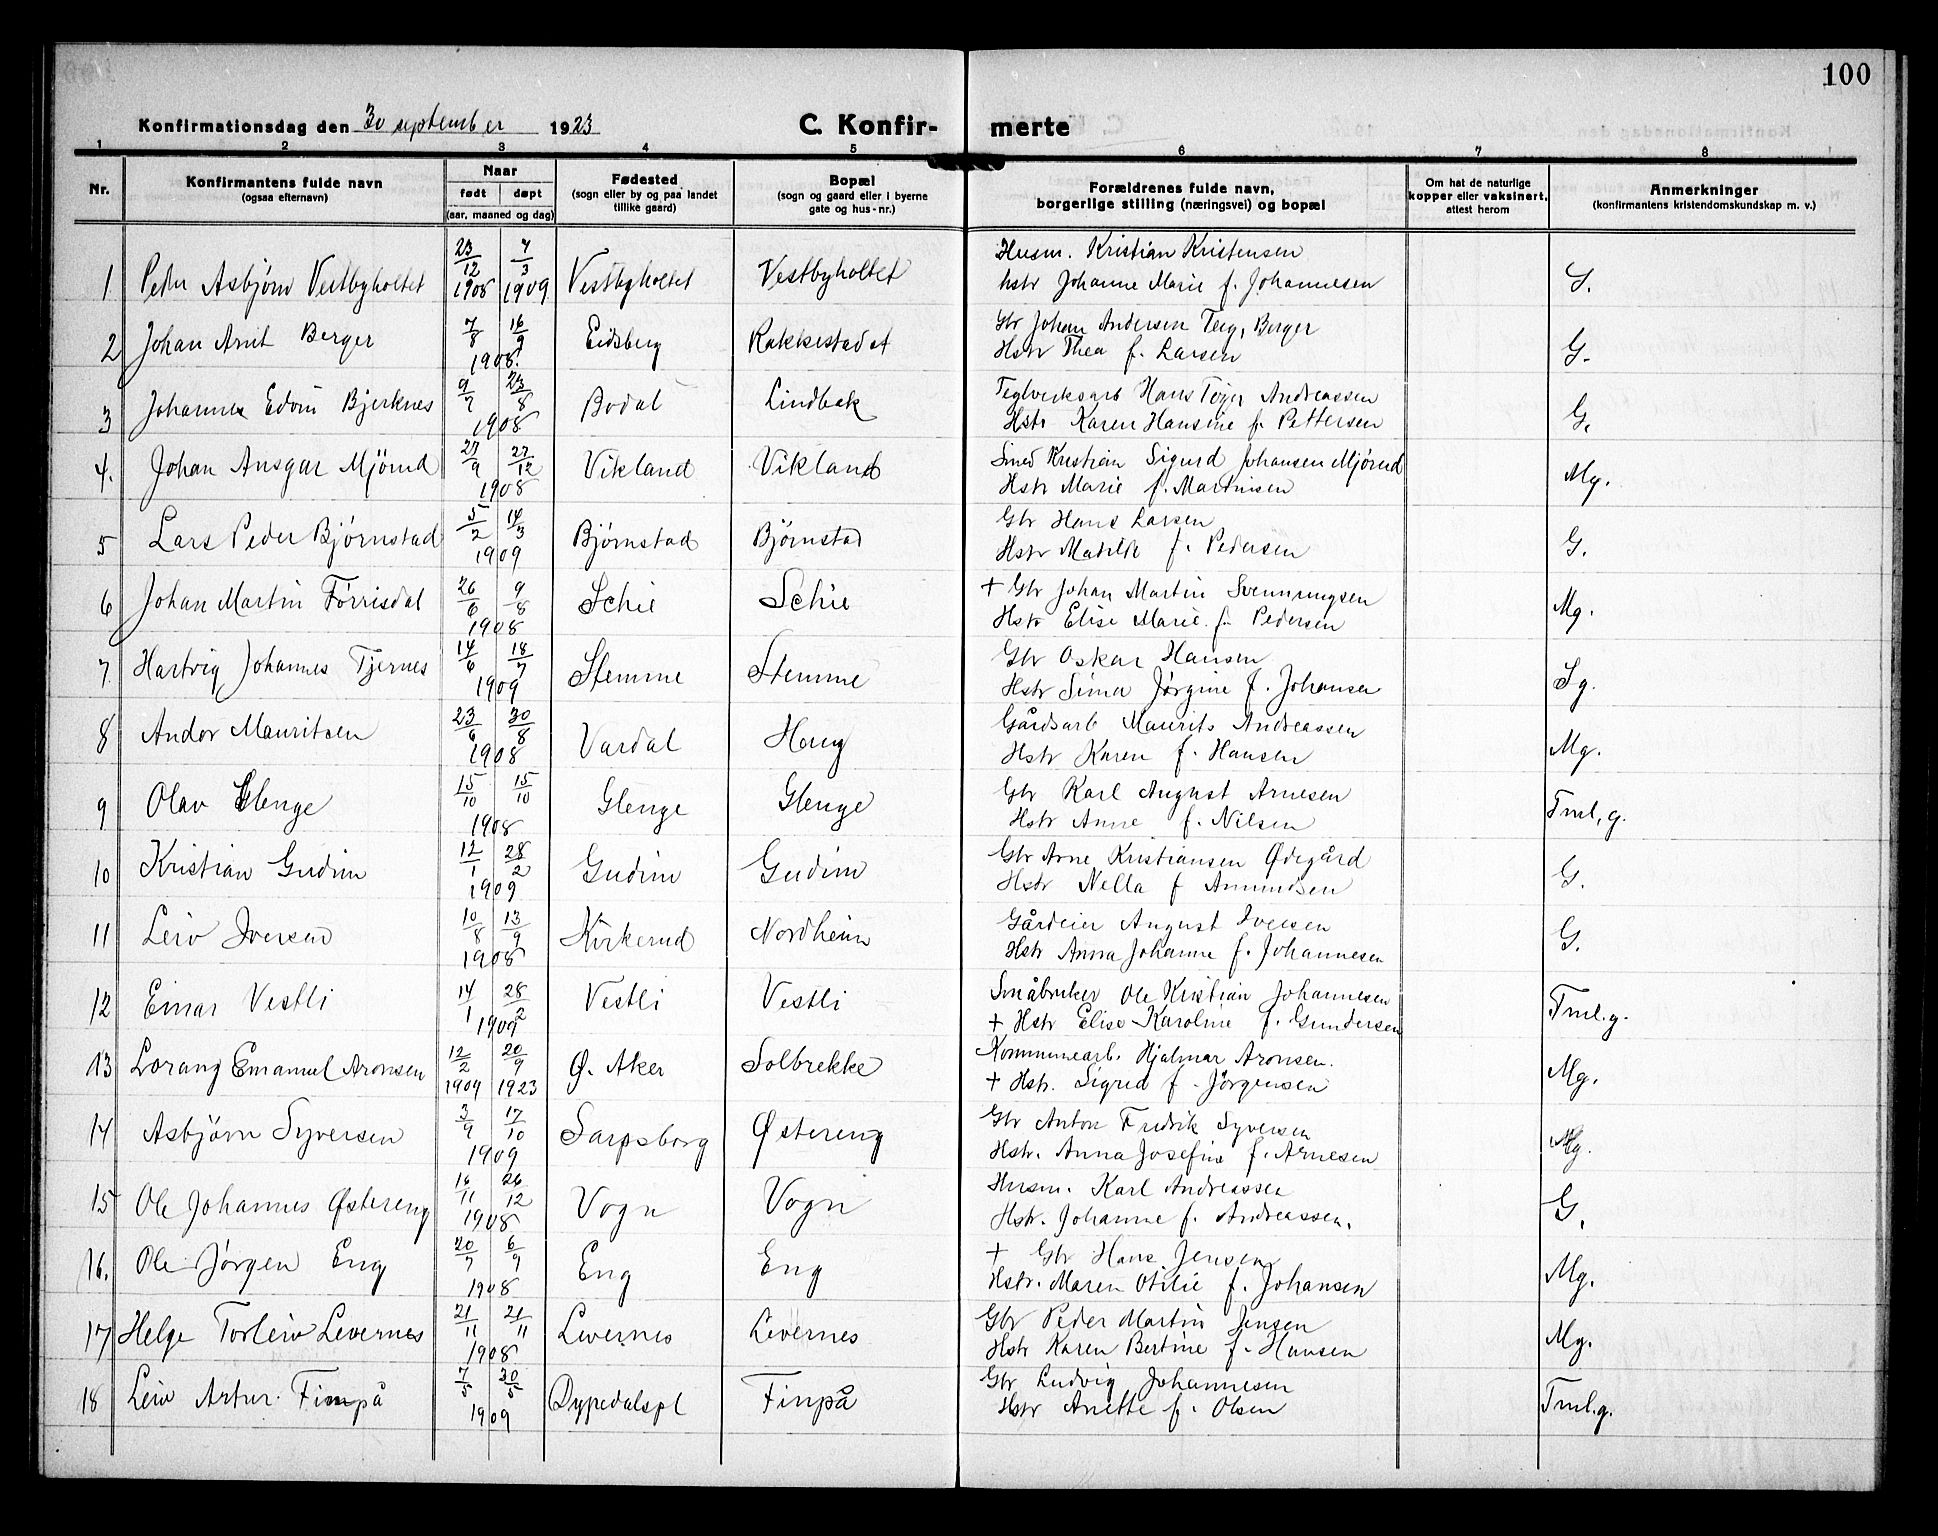 100
Konfirmationsdag den 30 september 1923
C. Konfir-
merte
1 2 3 4 5 6 7 8
Nr.
Konfirmantens fulde navn
(ogsaa efternavn)
Naar
født døpt
(aar, maaned og dag)
Fødested
(sogn eller by og paa landet
tillike gaard)
Bopæl
(sogn og gaard eller i byerne
gate og hus-nr.)
Forældrenes fulde navn,
borgerlige stilling (næringsvei) og bopæl
Om hat de naturlige
kopper eller vaksinert,
attest herom
Anmerkninger
(konfirmantens kristendomskundskap m. v.)
1 Peder Asbjörn Vestbyholtet 23/12 1908 7/3 1909 Vestbyholtet Vestbyholtet Husm. Kristian Kristensen
hstr Johanne Marie f. Johannesen S.
2 Johan Arnt Berger 7/8 16/9 1908 Eidsberg Rakkestadet Gbr Johan Andersen Teig, Berger
Hstr Thea f. Larsen G.
3 Johannes Edvin Bjerknes 9/7 23/8 1908 Bodal Lindbak Teglverksarb Hans Andreassen
Hstr Karen Hansine f. Pettersen G.
4. Johan Ansgar Mjörud 27/9 27/12 1908 Vikland Vikland Smed Kristian Sigurd Johansen Mjörud
Hstr Marie f. Martinsen Mg.
5 Lars Peder Bjørnstad 5/2 14/3 1909 Bjørnstad Bjørnstad Gbr Hans Larsen
Hstr Matilde f. Pedersen G.
6 Johan Martin Törrisdal 26/6 9/8 1908 Schie Schie + Gbr Johan Martin Svenningsen
Hstr Elise Marie f. Pedersen Mg.
7 Hartvig Johannes Tjernes 14/6 18/7 1909 Stemme Stemme Gbr Oskar Hansen
Hstr Sina Jørgine f. Johansen Sg.
8 Andor Mauritsen 23/6 30/8 1908 Vardal Haug Gårdsarb Maurits Andreassen
Hstr Karen f. Hansen Mg.
9 Olav Glenge 15/10 15/10 1908 Glenge Glenge Gbr Karl August Arnesen
Hstr Anne f. Nilsen Tml, g.
10 Kristian Gudim 12/1 28/2 1909 Gudim Gudim Gbr Arne Kristiansen Ødegård
Hstr Nella f Amundsen G.
11 Leiv Iversen 10/8 13/9 1908 Kirkerud Nordheim Gårdeier August Iversen
Hstr Anna Johanne f. Johannesen G.
12 Einar Vestli 14/1 28/2 1909 Vestli Vestli Småbruker Ole Kristian Johannesen
+ Hstr Elise Karoline f. Gundersen Tml.g.
13 Lorang Emanuel Aronsen 12/2 1909 20/9 1923 Ø. Aker Solbrekke Kommunearb. Hjalmar Aronsen.
+ Hstr. Sigrid f. Jörgensen Mg.
14 Asbjörn Syversen 3/9 17/10 1909 Sarpsborg Østereng Gbr Anton Fredrik Syversen
Hstr. Anna Josefine f. Arnesen Mg.
15 Ole Johannes Østereng 16/11 26/12 1908 Vogn Vogn Husm. Karl Andreassen
Hstr. Johanne f. Andreassen. G.
16. Ole Jörgen Eng 20/7 6/9 1908 Eng Eng + Gbr Hans Jensen
Hstr. Maren Otilie f. Johansen Mg.
17 Helge Torleiv Levernes 21/11 21/11 1908 Levernes Levernes Gbr Peder Martin Jensen
Hstr Karen Bertine f. Hansen Mg.
18 Leiv Artur Finpå 7/5 30/5 1909 Dypedalspl Finpå Gbr Ludvig Johannesen
Hstr Anette f. Olsen Tml.g.